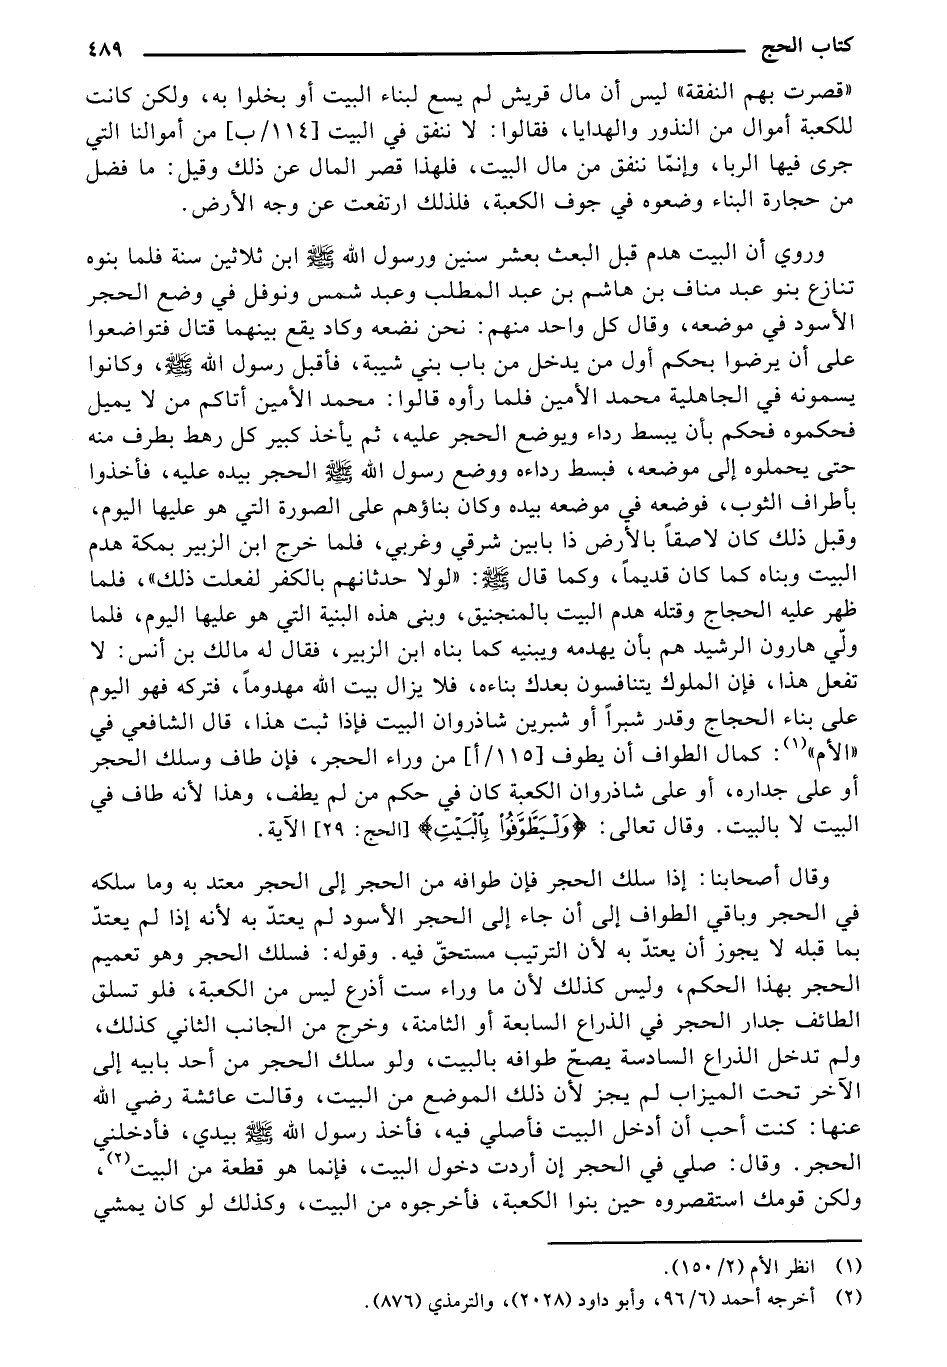 كتاب الحج ٤٨٩
«قصرت بهم النفقة» ليس أن مال قريش لم يسع لبناء البيت أو بخلوا به، ولكن كانت
للكعبة أموال من النذور والهدايا، فقالوا: لا ننفق في البيت [١١٤/ب] من أموالنا التي
جرى فيها الربا، وإنّما ننفق من مال البيت، فلهذا قصر المال عن ذلك وقيل: ما فضل
من حجارة البناء وضعوه في جوف الكعبة، فلذلك ارتفعت عن وجه الأرض.
وروي أن البيت هدم قبل البعث بعشر سنين ورسول الله ﷺ ابن ثلاثين سنة فلما بنوه
تنازع بنو عبد مناف بن هاشم بن عبد المطلب وعبد شمس ونوفل في وضع الحجر
الأسود في موضعه، وقال كل واحد منهم: نحن نضعه وكاد يقع بينهما قتال فتواضعوا
على أن يرضوا بحكم أول من يدخل من باب بني شيبة، فأقبل رسول الله ﷺ، وكانوا
يسمونه في الجاهلية محمد الأمين فلما رأوه قالوا: محمد الأمين أتاكم من لا يميل
فحكموه فحكم بأن يبسط رداء ويوضع الحجر عليه، ثم يأخذ كبير كل رهط بطرف منه
حتى يحملوه إلى موضعه، فبسط رداءه ووضع رسول الله ﷺ الحجر بيده عليه، فأخذوا
بأطراف الثوب، فوضعه في موضعه بيده وكان بناؤهم على الصورة التي هو عليها اليوم،
وقبل ذلك كان لاصقاً بالأرض ذا بابين شرقي وغربي، فلما خرج ابن الزبير بمكة هدم
البيت وبناه كما كان قديماً، وكما قال ﷺ: «لولا حدثانهم بالكفر لفعلت ذلك»، فلما
ظهر عليه الحجاج وقتله هدم البيت بالمنجنيق، وبنى هذه البنية التي هو عليها اليوم، فلما
ولّي هارون الرشيد هم بأن يهدمه ويبنيه كما بناه ابن الزبير، فقال له مالك بن أنس: لا
تفعل هذا، فإن الملوك يتنافسون بعدك بناءه، فلا يزال بيت الله مهدوماً، فتركه فهو اليوم
على بناء الحجاج وقدر شبراً أو شبرين شاذروان البيت فإذا ثبت هذا، قال الشافعي في
«الأم»(١): كمال الطواف أن يطوف [١١٥/أ] من وراء الحجر، فإن طاف وسلك الحجر
أو على جداره، أو على شاذروان الكعبة كان في حكم من لم يطف، وهذا لأنه طاف في
البيت لا بالبيت. وقال تعالى: ﴿وَلْيَطَّوَّفُواْ بِٱلْبَيْتِ﴾ [الحج: ٢٩] الآية.
وقال أصحابنا: إذا سلك الحجر فإن طوافه من الحجر إلى الحجر معتد به وما سلكه
في الحجر وباقي الطواف إلى أن جاء إلى الحجر الأسود لم يعتدّ به لأنه إذا لم يعتدّ
بما قبله لا يجوز أن يعتدّ به لأن الترتيب مستحقّ فيه. وقوله: فسلك الحجر وهو تعميم
الحجر بهذا الحكم، وليس كذلك لأن ما وراء ست أذرع ليس من الكعبة، فلو تسلق
الطائف جدار الحجر في الذراع السابعة أو الثامنة، وخرج من الجانب الثاني كذلك،
ولم تدخل الذراع السادسة يصحّ طوافه بالبيت، ولو سلك الحجر من أحد بابيه إلى
الآخر تحت الميزاب لم يجز لأن ذلك الموضع من البيت، وقالت عائشة رضي الله
عنها: كنت أحب أن أدخل البيت فأصلي فيه، فأخذ رسول الله ﷺ بيدي، فأدخلني
الحجر. وقال: صلي في الحجر إن أردت دخول البيت، فإنما هو قطعة من البيت(٢)،
ولكن قومك استقصروه حين بنوا الكعبة، فأخرجوه من البيت، وكذلك لو كان يمشي
(١) انظر الأم (٢/١٥٠).
(٢) أخرجه أحمد (٦/٩٦، وأبو داود (٢٠٢٨)، والترمذي (٨٧٦).